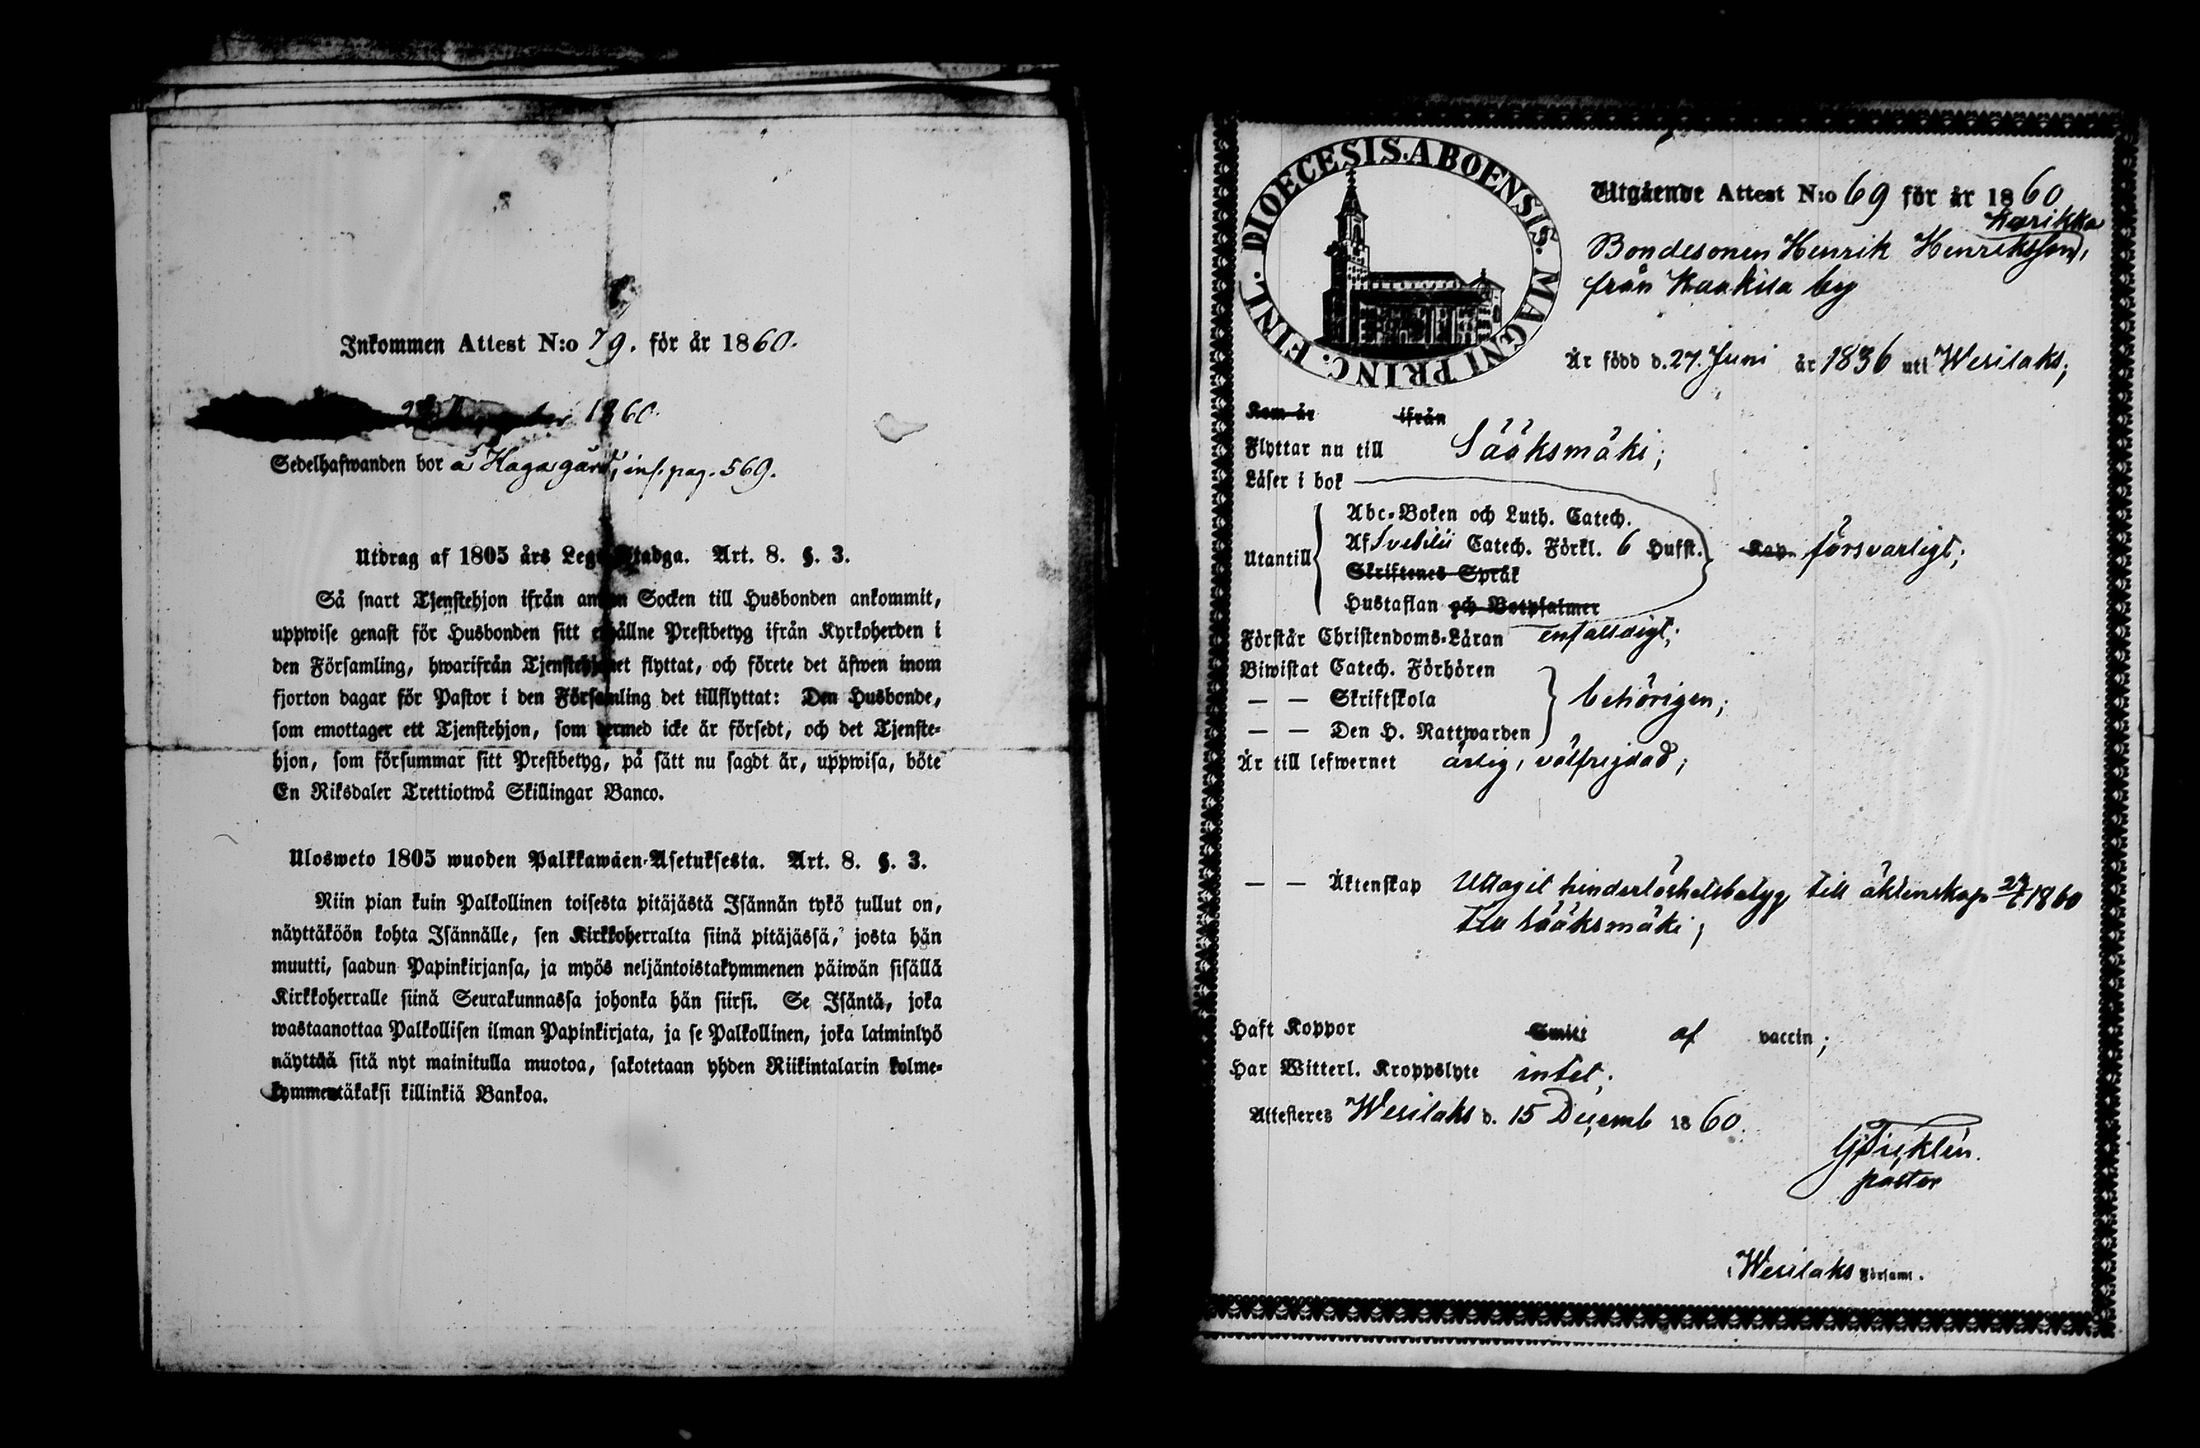 Inkommen Attest N:o 79. för år 1860.
1860.
Sedelhafwanden bor å Haga gård, inf. pag. 569.
Utdrag af 1805 års Lego-Stadga. Art. 8. §. 3.
Så snart Tjenstehjon ifrån annan Socken till Husbonden ankommit,
uppwise genast för Husbonden sitt erhållne Prestbetyg ifrån Kyrkoherden i
den Församling, hwarifrån Tjenstehjonet flyttat, och förete det äfwen inom
fjorton dagar för Pastor i den Församling det tillflyttat: Den Husbonde,
som emottager ett Tjenstehjon, som dermed icke är försedt, och det Tjenste-
hjon, som försummar sitt Prestbetyg, på sätt nu sagdt är, uppwisa, böte
En Riksdaler Trettiotwå Skillingar Banco.
Ulosweto 1805 wuoden Palkkawäen-Asetuksesta. Art. 8. §. 3.
Niin pian kuin Palkollinen toisesta pitäjästä Isännän tykö tullut on,
näyttäköön kohta Isännälle, sen Kirkkoherralta siinä pitäjässä, josta hän
muutti, saadun Papinkirjansa, ja myös neljäntoistakymmenen päiwän sisällä
Kirkkoherralle siinä Seurakunnassa johonka hän siirsi. Se Isäntä, joka
wastaanottaa Palkollisen ilman Papinkirjata, ja se Palkollinen, joka laiminlyö
näyttää sitä nyt mainitulla muotoa, sakotetaan yhden Riikintalarin kolme-
kymmentäkaksi killinkiä Bankoa.
DIOECESIS.ABOENSIS. MAGNI PRINC. FINL.
Utgående Attest N:o 69 för år 1860
Karikka
Bondesonen Henrik Henriksson,
från Kaakila by
Är född d. 27. Juni år 1836 uti Wesilaks;
Kom år ifrån
Flyttar nu till Sääksmäki;
Läser i bok
Abc-Boken och Luth. Catech.
Utantill Af Svebilii Catech. Förkl. 6 Hufst. Kap. försvarligt;
Skriftenes Språk
Hustaflan och Botpsalmer
Förstår Christendoms-Läran enfalldigt;
Biwistat Catech. Förhören
— — Skriftskola behörigen;
— — Den H. Nattwarden
Är till lefwernet ärlig, välfrejdad;
— — Äktenskap Uttagit hinderlöshetsbetyg till äktenskap 1860
till Sääksmäki;
Haft Koppor Smitt af vaccin;
Har Witterl. Kroppslyte intet;
Attesteres Wesilaks d. 15 Decemb 1860.
pastor
Wesilaks Församl.